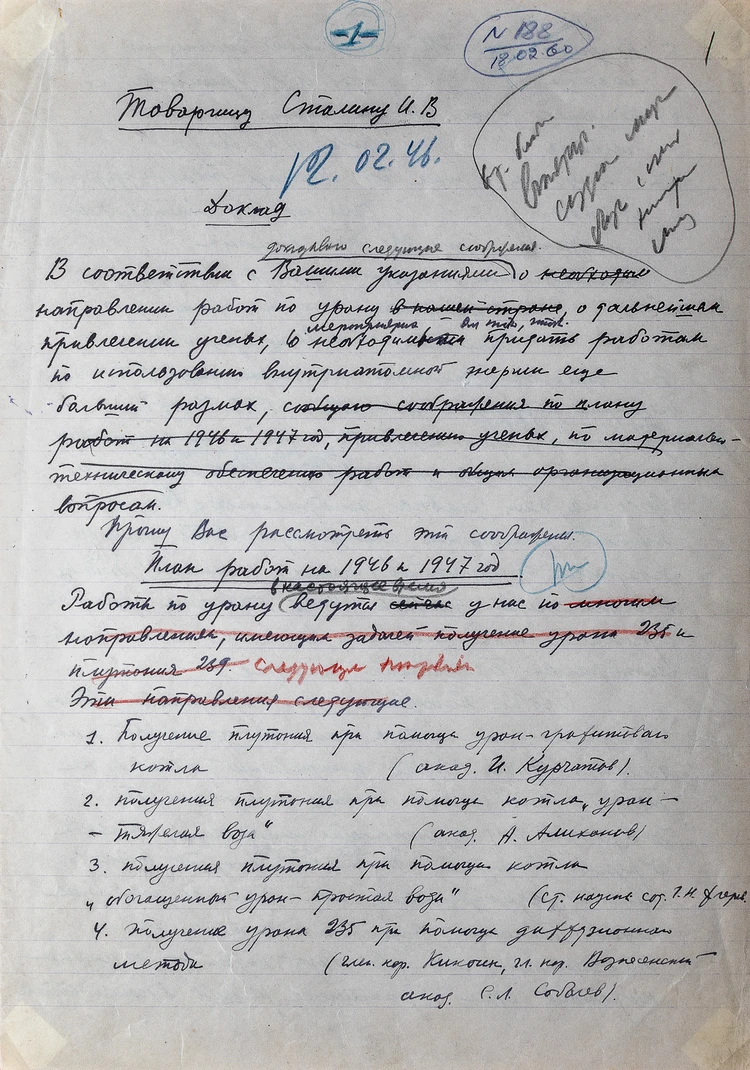 -1-
N 188
18.02.60
1
Товарищу Сталину И.В
12.02.46.
Доклад
докладываю следующие соображения.
В соответствии с Вашими указаниями о необходим
направлении работ по урану в нашей стране, о дальнейшем
мероприятия
привлечении ученых, о необходимости придать работам
по использованию внутриатомной энергии еще
больший размах, сообщаю соображения по плану
работ на 1946 и 1947 год, привлечению ученых, по материально-
техническому обеспечению работ и общим организационным
вопросам.
Прошу Вас рассмотреть эти соображения.
План работ на 1946 и 1947 год
в настоящее время
Работы по урану ведутся сейчас у нас по многим
направлениям, имеющим задачей получение урана 235 и
плутония 239. Следующие
Эти направления следующие.
1. Получение плутония при помощи уран-графитового
котла (акад. И. Курчатов).
2. получения плутония при помощи котла „уран-
- тяжелая вода" (акад. А. Алиханов)
3. получения плутония при помощи котла
„обогащенный уран - простая вода" (ст. научн. сот. Г.Н. Флеров
4. Получение урана 235 при помощи диффузионного
метода (член. кор. Кикоин, чл. кор. Вознесенский
акад. С.Л. Соболев).